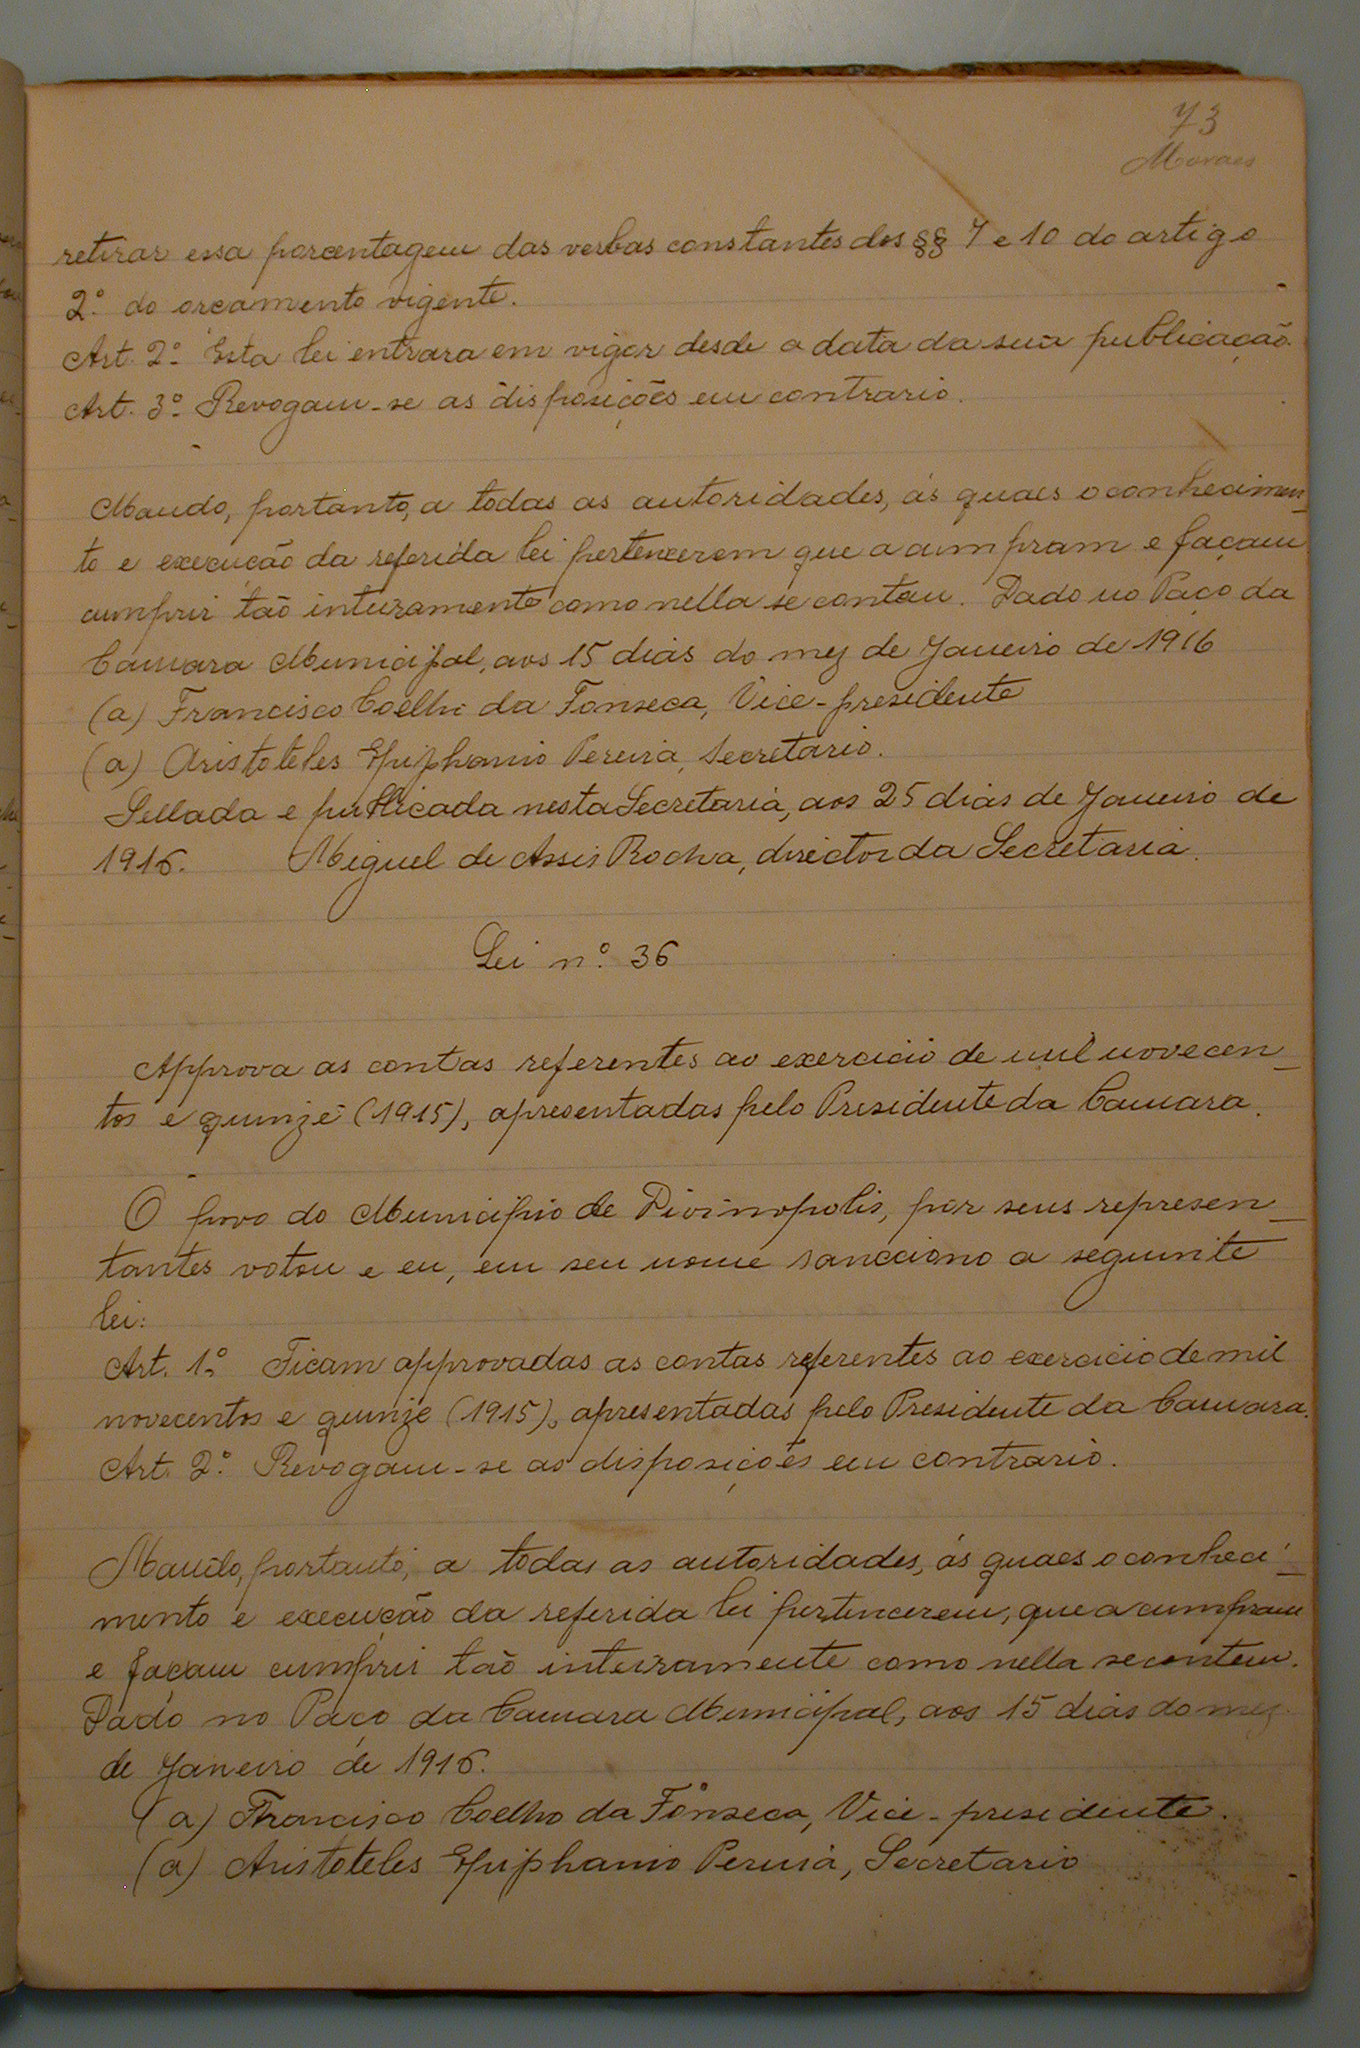 73
Moraes
retirar essa porcentagem das verbas constantes dos §§ 7 e 10 do artigo
2º do orçamento vigente.
Art. 2º Esta lei entrara em vigor desde a data da sua publicação.
Art. 3º Revogam-se as disposições em contrario.
Mando, portanto, a todas as autoridades, ás quaes o conhecimen-
to e execução da referida lei pertencerem que a cumpram e façam
cumprir tão inteiramente como nella se contem. Dado no Paço da
Camara Municipal, aos 15 dias do mez de Janeiro de 1916
(a) Francisco Coelho da Fonseca, Vice-presidente
(a) Aristoteles Epiphanio Pereira, Secretario.
Sellada e publicada nesta Secretaria, aos 25 dias de Janeiro de
1916. Miguel de Assis Rocha, director da Secretaria.
Lei nº 36
Approva as contas referentes ao exercicio de mil novecen-
tos e quinze (1915), apresentadas pelo Presidente da Camara.
O povo do Municipio de Divinopolis, por seus represen-
tantes votou e eu, em seu nome sancciono a seguinte
lei:
Art. 1º Ficam approvadas as contas referentes ao exercicio de mil
novecentos e quinze (1915), apresentadas pelo Presidente da Camara.
Art. 2º Revogam-se as disposições em contrario.
Mando, portanto, a todas as autoridades, ás quaes o conheci-
mento e execução da referida lei pertencerem, que a cumpram
e façam cumprir tão inteiramente como nella se contem.
Dado no Paço da Camara Municipal, aos 15 dias do mez
de Janeiro de 1916.
(a) Francisco Coelho da Fonseca, Vice-presidente.
(a) Aristoteles Epiphanio Pereira, Secretario